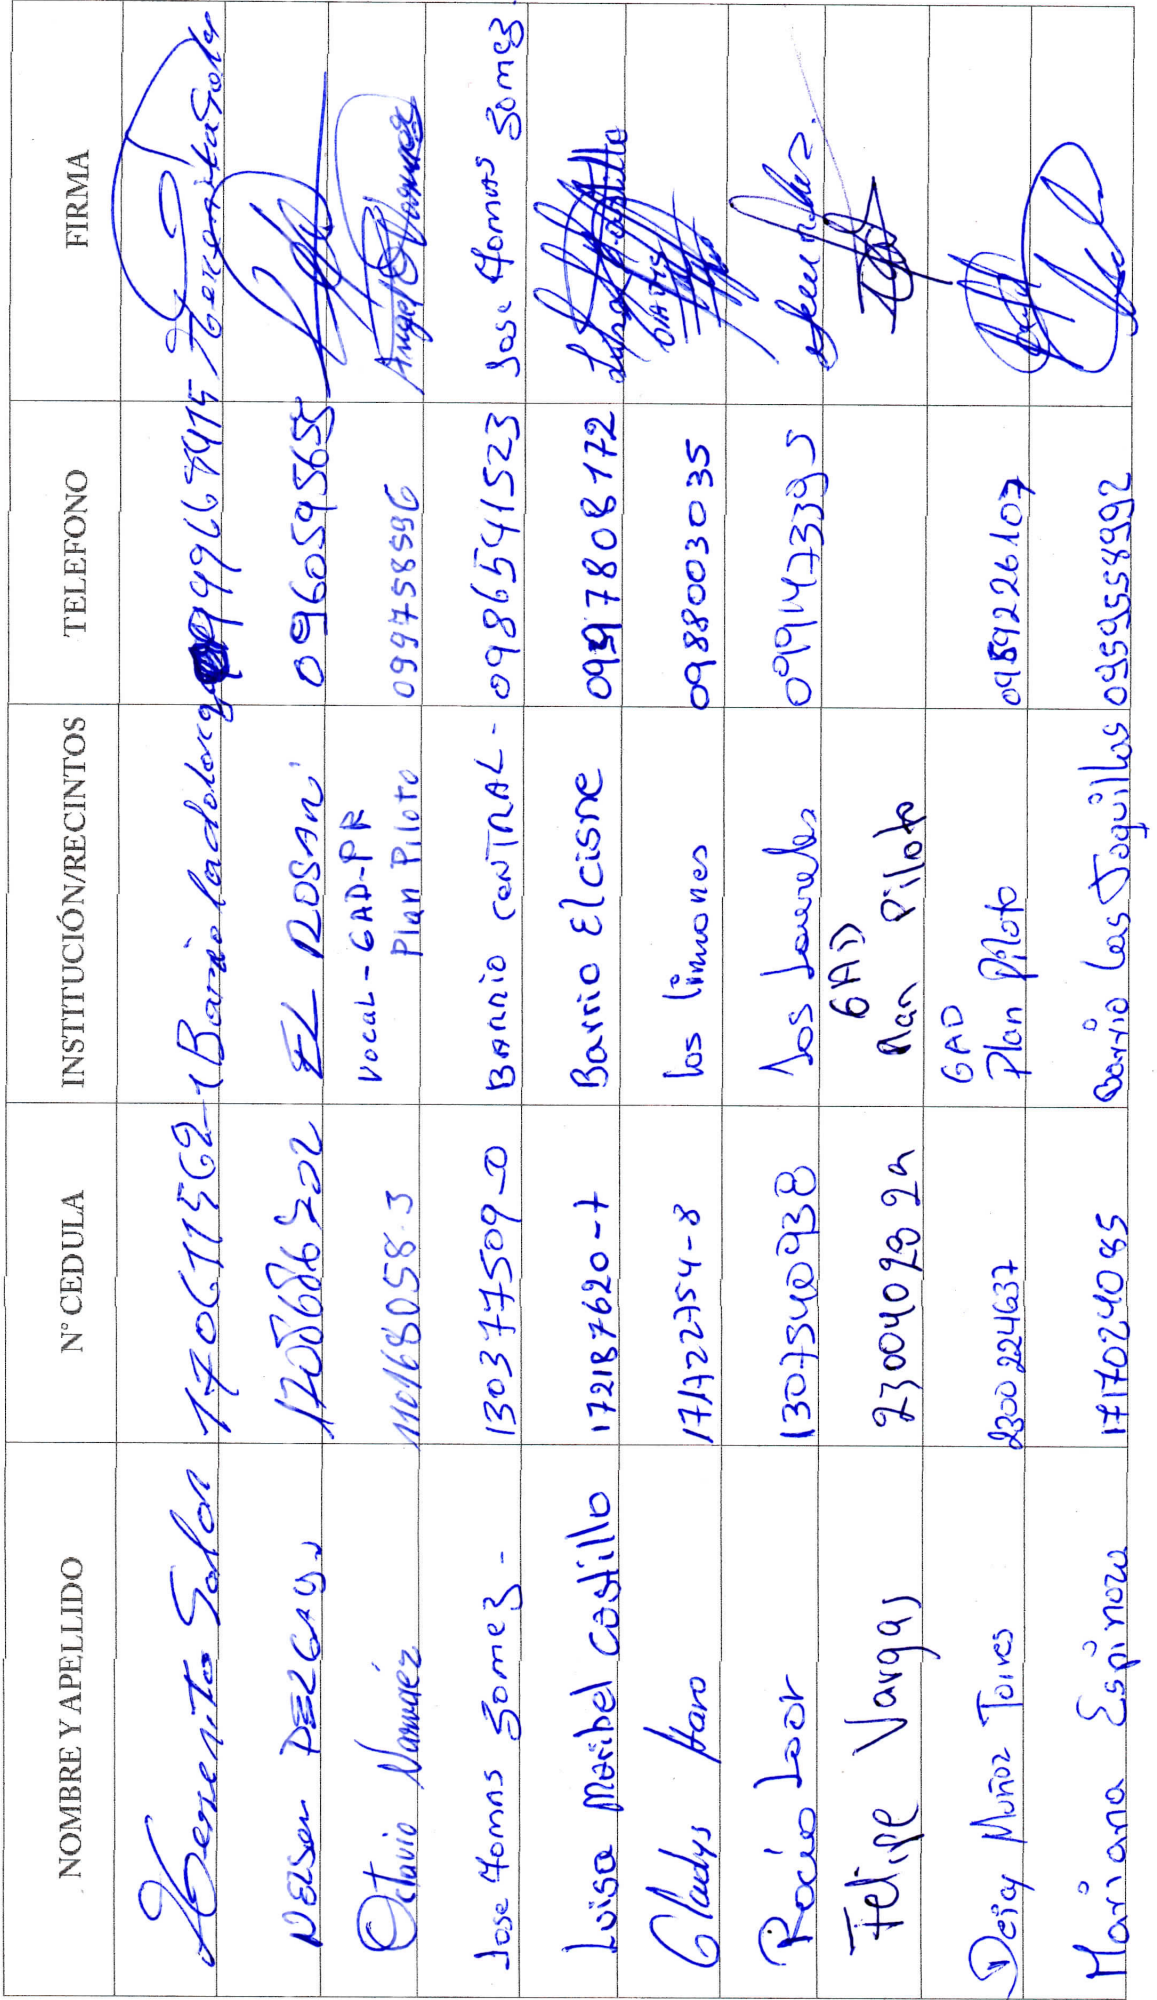 NOMBRE Y APELLIDO N° CEDULA INSTITUCIÓN/RECINTOS TELEFONO FIRMA
170611562-1 Barrio
Nelson DELGADO 1708686702 EL ROSARI 0960595655
Octavio Narváez 110168058-3 Vocal-GAD-PR Plan Piloto 0997585596 Angel O Narváez
Jose Tomas Gomez - 130377509-0 BARRIO CENTRAL - 0986541523 Jose Tomas Gomez
Luisa Maribel Castillo 172187620-7 Barrio El cisne 0997808172
Gladys Haro 171722754-8 los limones 0988003035
Rocio Loor 1307540938 Los Laureles 0991473395
Felipe Vargas GAD Plan Piloto
Deicy Muñoz Torres 2300224637 GAD Plan Piloto 0989226107
Mariana Espinoza 1717024085 Barrio Las Toquillas 0959558992